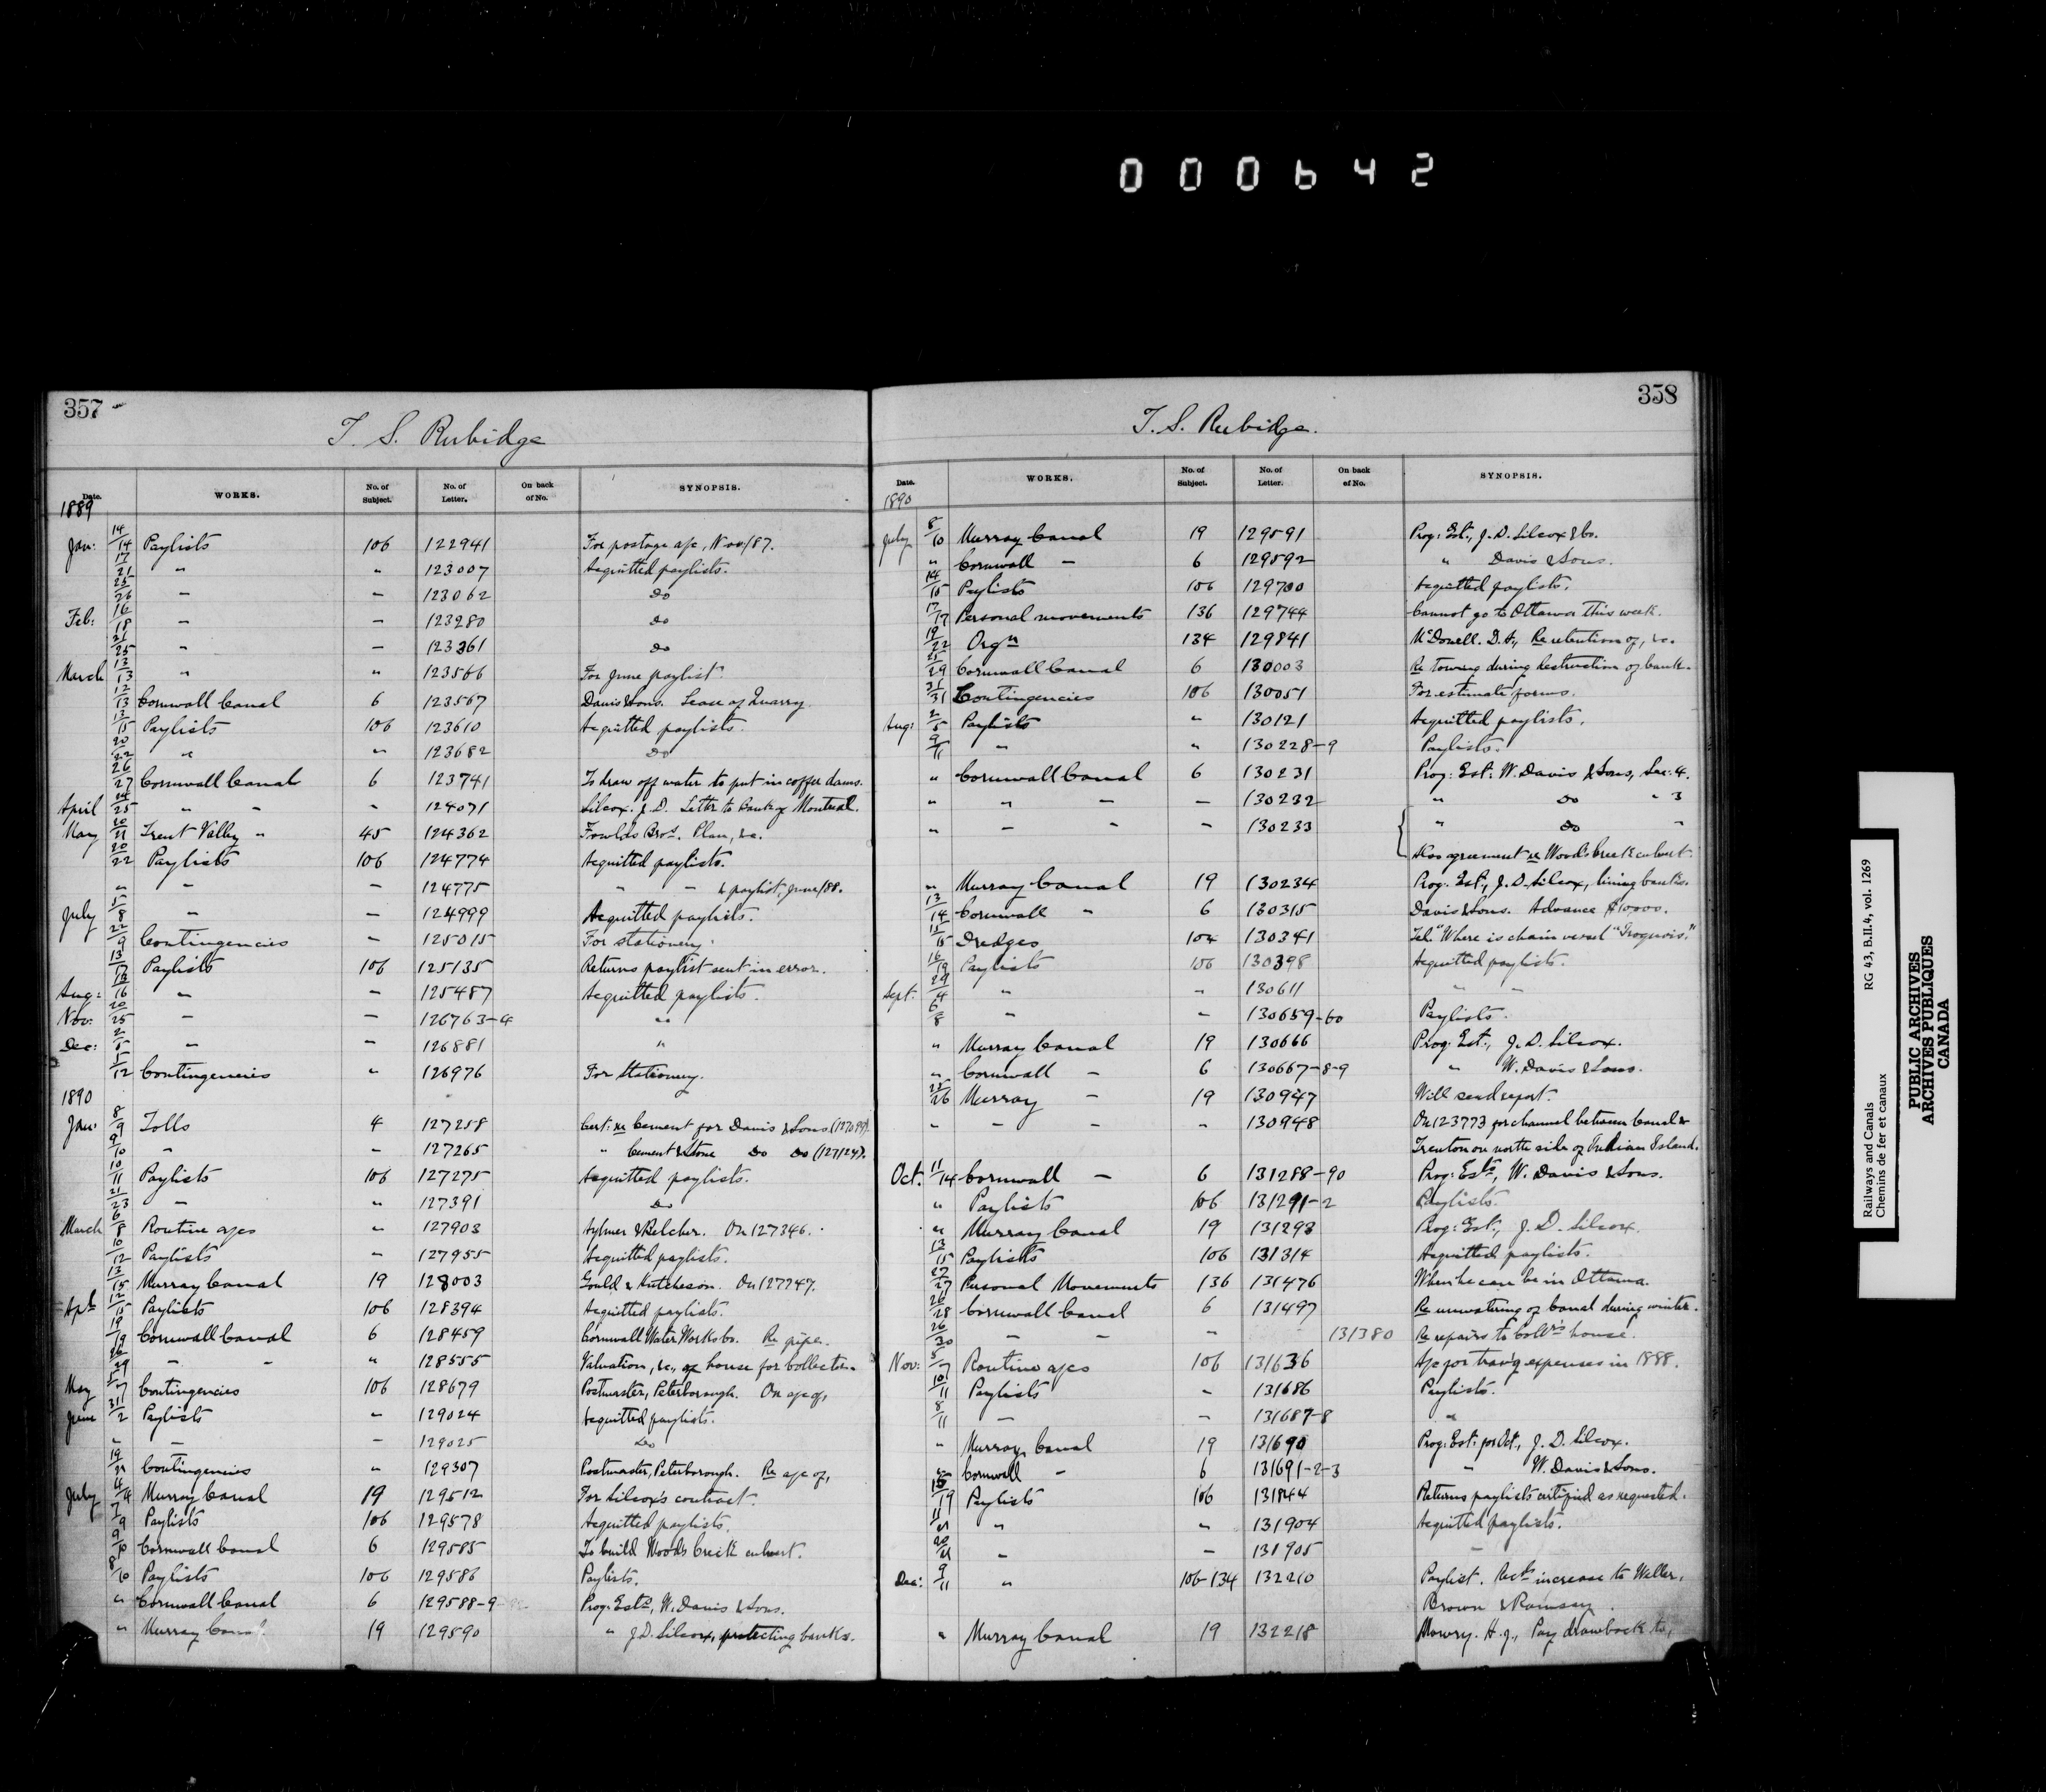 000642
357
T. S. Rubidge
Date. WORKS. No. of Subject. No. of Letter. On back of No. SYNOPSIS.
1889
Jan: 14/14 Paylists 106 122941 For postage a/c, Nov/87.
17/21 " " 123007 Acquitted paylists.
25/26 " " 123062 Do
Feb: 16/18 " " 123280 Do
21/25 " " 123361 Do
March 13/13 " " 123566 For June paylist.
12/13 Cornwall Canal 6 123567 Davis & Sons. Lease of Quarry.
13/15 Paylists 106 123610 Acquitted paylists.
20/22 " " 123682 Do
26/27 Cornwall Canal 6 123741 To draw off water to put in coffer dams.
April 24/25 " " " 124071 Silcox. J. D. Letter to Bank of Montreal.
May 20/21 Trent Valley " 45 124362 Fowlds Bros. Plan, &c.
20/22 Paylists 106 124774 Acquitted paylists.
" " " 124775 " " & paylist, June/88.
July 5/8 " " 124999 Acquitted paylists.
22/9 Contingencies " 125015 For stationery.
13/17 Paylists 106 125135 Returns paylist sent in error.
Aug: 13/16 " " 125487 Acquitted paylists.
Nov: 20/25 " " 126763-4 "
Dec: 2/5 " " 126881 "
5/12 Contingencies " 126976 For Stationery.
1890
Jan: 8/9 Tolls 4 127258 Cert: re Cement for Davis & Sons (127099).
9/10 " 127265 " Cement & Stone Do Do (127124).
10/11 Paylists 106 127275 Acquitted paylists.
21/23 " " 127391 Do
March 6/8 Routine a/cs " 127903 Aylmer & Belcher. On 127346.
10/12 Paylists " 127955 Acquitted paylists.
13/15 Murray Canal 19 128003 Gould & Hutcheson. On 127747.
Apl 12/15 Paylists 106 128394 Acquitted paylists.
19/19 Cornwall Canal 6 128459 Cornwall Water Works Co. Re pipe.
26/29 " " " 128555 Valuation, &c., of house for Collector.
May 5/7 Contingencies 106 128679 Postmaster, Peterborough. On a/c of,
June 31/2 Paylists " 129024 Acquitted paylists.
" " " 129025 Do
19/21 Contingencies " 129307 Postmaster, Peterborough. Re a/c of,
July 4/4 Murray Canal 19 129512 For Silcox's contract.
7/9 Paylists 106 129578 Acquitted paylists.
9/10 Cornwall Canal 6 129585 To build Woods Creek culvert.
8/10 Paylists 106 129586 Paylists.
" Cornwall Canal 6 129588-9 Prog: Ests, W. Davis & Sons.
" Murray Canal 19 129590 " J. D. Silcox, protecting banks.
358
T. S. Rubidge.
Date. WORKS. No. of Subject. No. of Letter. On back of No. SYNOPSIS.
1890
July 8/10 Murray Canal 19 129591 Prog: Est., J. D. Silcox & Co.
" Cornwall " 6 129592 " Davis & Sons.
14/15 Paylists 106 129700 Acquitted paylists.
17/17 Personal movements 136 129744 Cannot go to Ottawa this week.
19/22 Orgn 134 129841 McDonell. D. A., Re retention of, &c.
25/29 Cornwall Canal 6 130003 Re towing during destruction of bank.
31/31 Contingencies 106 130051 For estimate forms.
Aug: 2/5 Paylists " 130121 Acquitted paylists.
9/11 " " 130228-9 Paylists.
" Cornwall Canal 6 130231 Prog: Est: W. Davis & Sons, Sec: 4.
" " " " 130232 " Do " 3
" " " " 130233 " Do "
Also agreement re Woods Creek culvert.
" Murray Canal 19 130234 Prog: Est., J. D. Silcox, lining banks.
13/14 Cornwall " 6 130315 Davis & Sons. Advance $10000.
15/15 Dredges 104 130341 Tel. "Where is chain vessel "Iroquois."
16/19 Paylists 106 130398 Acquitted paylists.
Sept: 29/4 " " 130611 " "
6/8 " " 130659-60 Paylists.
" Murray Canal 19 130666 Prog: Est., J. D. Silcox.
" Cornwall " 6 130667-8-9 " W. Davis & Sons.
25/26 Murray " 19 130947 Will send report.
" " " " 130948 On 123773 for channel between Canal &
Trenton on north side of Indian Island.
Oct. 11/14 Cornwall " 6 131288-90 Prog: Ests, W. Davis & Sons.
" Paylists 106 131291-2 Paylists.
" Murray Canal 19 131293 Prog: Est., J. D. Silcox.
13/15 Paylists 106 131314 Acquitted paylists.
27/27 Personal Movements 136 131476 When he can be in Ottawa.
26/28 Cornwall Canal 6 131497 Re unwatering of Canal during winter.
26/30 " " " 131380 Re repairs to Collr's house.
Nov: 5/7 Routine a/cs 106 131636 A/c for trav'g expenses in 1888.
10/11 Paylists " 131686 Paylists.
8/11 " " 131687-8 "
" Murray Canal 19 131690 Prog: Est: for Oct., J. D. Silcox.
" Cornwall " 6 131691-2-3 " W. Davis & Sons.
18/19 Paylists 106 131844 Returns paylists certified as requested.
" " 131904 Acquitted paylists.
" " 131905 "
Dec: 9/11 " 106-134 132210 Paylist. Recds increase to Weller,
Brown & Ramsay.
" Murray Canal 19 132218 Mowry. H. J., Pay drawback to,
Railways and Canals RG 43, B.II.4, vol. 1269
Chemins de fer et canaux
PUBLIC ARCHIVES
ARCHIVES PUBLIQUES
CANADA